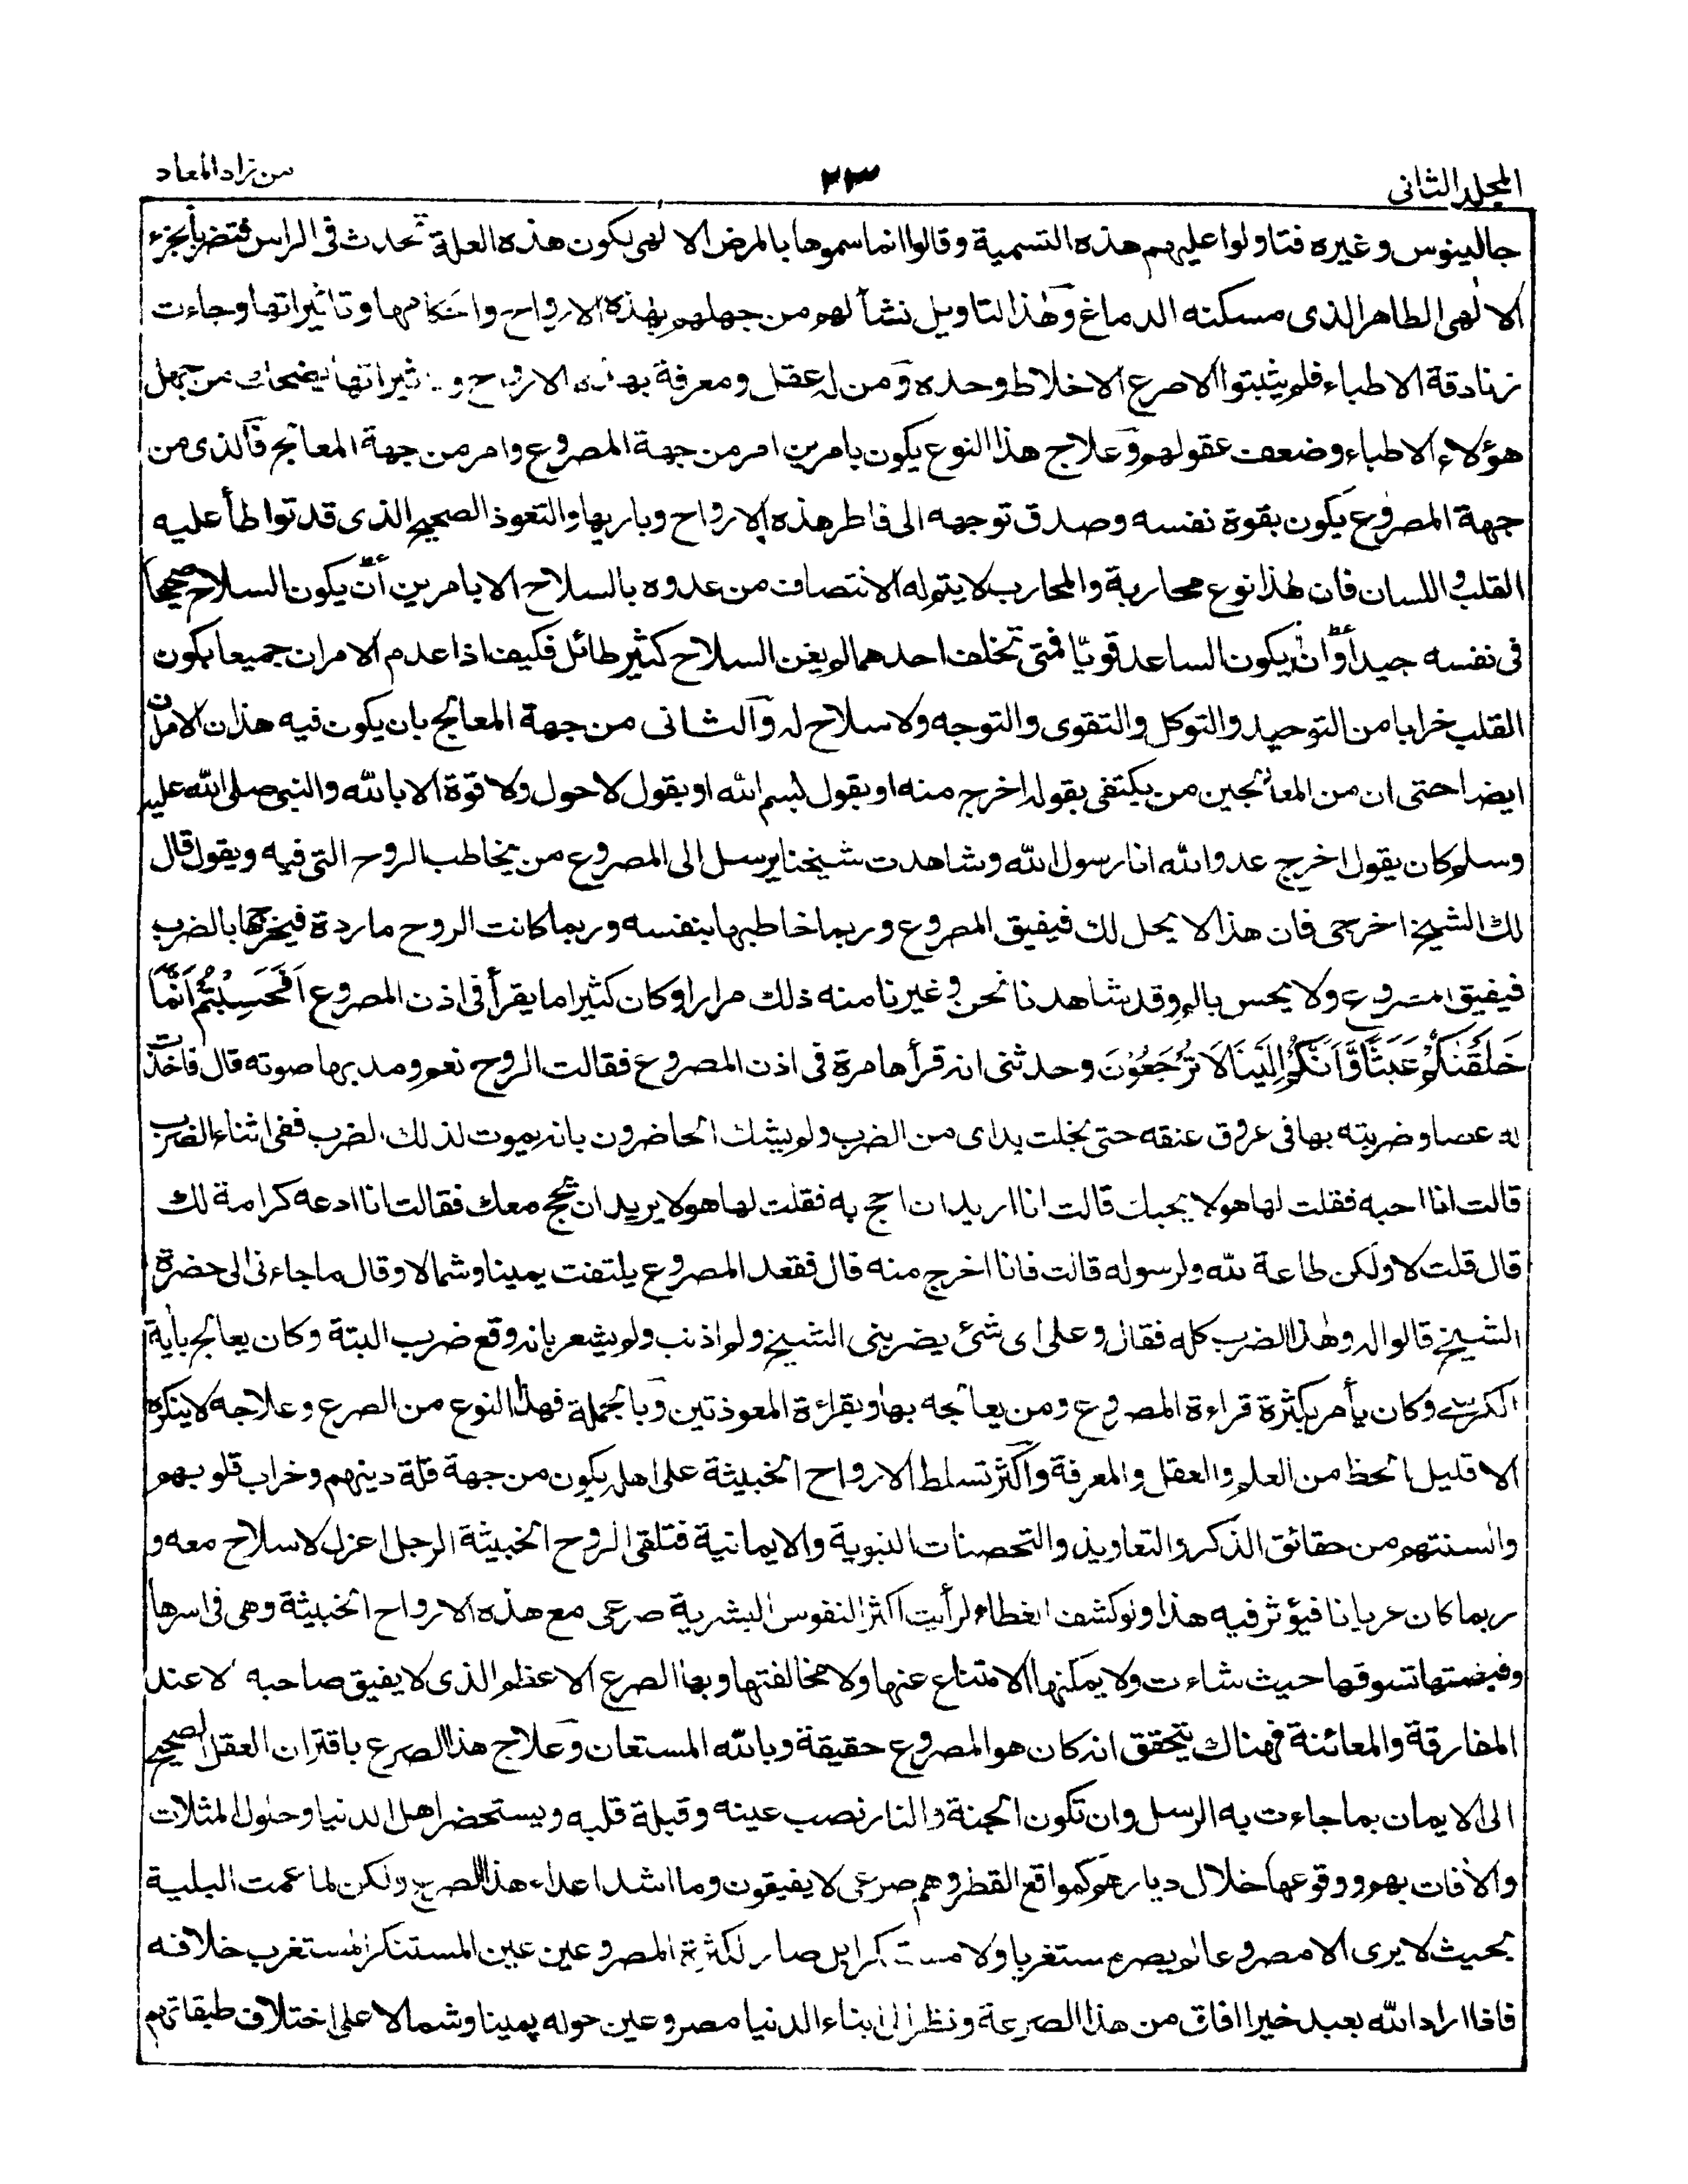 المجلد الثانى
٢٣
من زاد المعاد
جالينوس وغيره فتاولوا عليهم هذه التسمية وقالوا انما سموها بالمرض الالهى لكون هذه العلة تحدث فى الراس فتضر بالجزء
الالهى الطاهر الذى مسكنه الدماغ وهذا التاويل نشأ لهم من جهلهم بهذه الارواح واحكامها وتاثيراتها وجاءت
زنادقة الاطباء فلم يثبتوا الا صرع الاخلاط وحده ومن له عقل ومعرفة بهذه الارواح و تاثيراتها يضحك من جهل
هؤلاء الاطباء وضعف عقولهم وعلاج هذا النوع يكون بامرين امر من جهة المصروع وامر من جهة المعالج فالذى من
جهة المصروع يكون بقوة نفسه وصدق توجهه الى فاطر هذه الارواح وباريها والتعوذ الصحيح الذى قد تواطأ عليه
القلب واللسان فان هذا نوع محاربة والمحارب لا يتم له الانتصاف من عدوه بالسلاح الا بامرين ان يكون السلاح صحيحا
فى نفسه جيدا وان يكون الساعد قويا فمتى تخلف احدهما لم يغن السلاح كثير طائل فكيف اذا عدم الامران جميعا يكون
القلب خرابا من التوحيد والتوكل والتقوى والتوجه ولا سلاح له والثانى من جهة المعالج بان يكون فيه هذان الامران
ايضا حتى ان من المعالجين من يكتفى بقوله اخرج منه او بقول بسم الله او بقول لا حول ولا قوة الا بالله والنبى صلى الله عليه
وسلم كان يقول اخرج عدو الله انا رسول الله وشاهدت شيخنا يرسل الى المصروع من يخاطب الروح التى فيه ويقول قال
لك الشيخ اخرجى فان هذا لا يحل لك فيفيق المصروع وربما خاطبها بنفسه وربما كانت الروح ماردة فيخرجها بالضرب
فيفيق المصروع ولا يحس بالم وقد شاهدنا نحن وغيرنا منه ذلك مرارا وكان كثيرا ما يقرأ فى اذن المصروع اَفَحَسِبْتُمْ اَنَّمَا
خَلَقْنٰكُمْ عَبَثًا وَّاَنَّكُمْ اِلَيْنَا لَا تُرْجَعُوْنَ وحدثنى انه قرأها مرة فى اذن المصروع فقالت الروح نعم ومد بها صوته قال فاخذت
له عصا وضربته بها فى عروق عنقه حتى بخلت يداى من الضرب ولم يشك الحاضرون بانه يموت لذلك الضرب ففى اثناء الضرب
قالت انا احبه فقلت لها هو لا يحبك قالت انا اريد ان احج به فقلت لها هو لا يريد ان يحج معك فقالت انا ادعه كرامة لك
قال قلت لا ولكن طاعة لله ولرسوله قالت فانا اخرج منه قال فقعد المصروع يلتفت يمينا وشمالا وقال ما جاء نى الى حضرة
الشيخ قالوا له وهذا الضرب كله فقال وعلى اى شئ يضربنى الشيخ ولم اذنب ولم يشعر بانه وقع ضرب البتة وكان يعالج بأية
الكرسى وكان يأمر بكثرة قراءة المصروع ومن يعالجه بها وبقراءة المعوذتين وبالجملة فهذا النوع من الصرع وعلاجه لا ينكره
الا قليل الحظ من العلم والعقل والمعرفة واكثر تسلط الارواح الخبيثة على اهله يكون من جهة قلة دينهم وخراب قلوبهم
والسنتهم من حقائق الذكر والتعاويذ والتحصنات النبوية والايمانية فتلقى الروح الخبيثة الرجل اعزل لا سلاح معه و
ربما كان عريانا فيؤثر فيه هذا ولو كشف الغطاء لرأيت اكثر النفوس البشرية صرعى مع هذه الارواح الخبيثة وهى فى اسرها
وقبضتها تسوقها حيث شاءت ولا يمكنها الامتناع عنها ولا مخالفتها وبها الصرع الاعظم الذى لا يفيق صاحبه الا عند
المفارقة والمعائنة فهناك يتحقق انه كان هو المصروع حقيقة وبالله المستعان وعلاج هذا الصرع باقتران العقل الصحيح
الى الايمان بما جاءت به الرسل وان تكون الجنة والنار نصب عينه وقبلة قلبه ويستحضر اهل الدنيا وحلول المثلات
والأفات بهم ووقوعها خلال ديارهم كمواقع القطر وهم صرعى لا يفيقون وما اشد اعداء هذا الصرع ولكن لما عمت البلية
بحيث لا يرى الا مصروعا لم يصر مستغربا ولا مستنكرا بل صار لكثرة المصروعين عين المستنكر المستغرب خلافه
فاذا اراد الله بعبد خيرا افاق من هذا الصرعة ونظر الى ابناء الدنيا مصروعين حوله يمينا وشمالا على اختلاف طبقاتهم